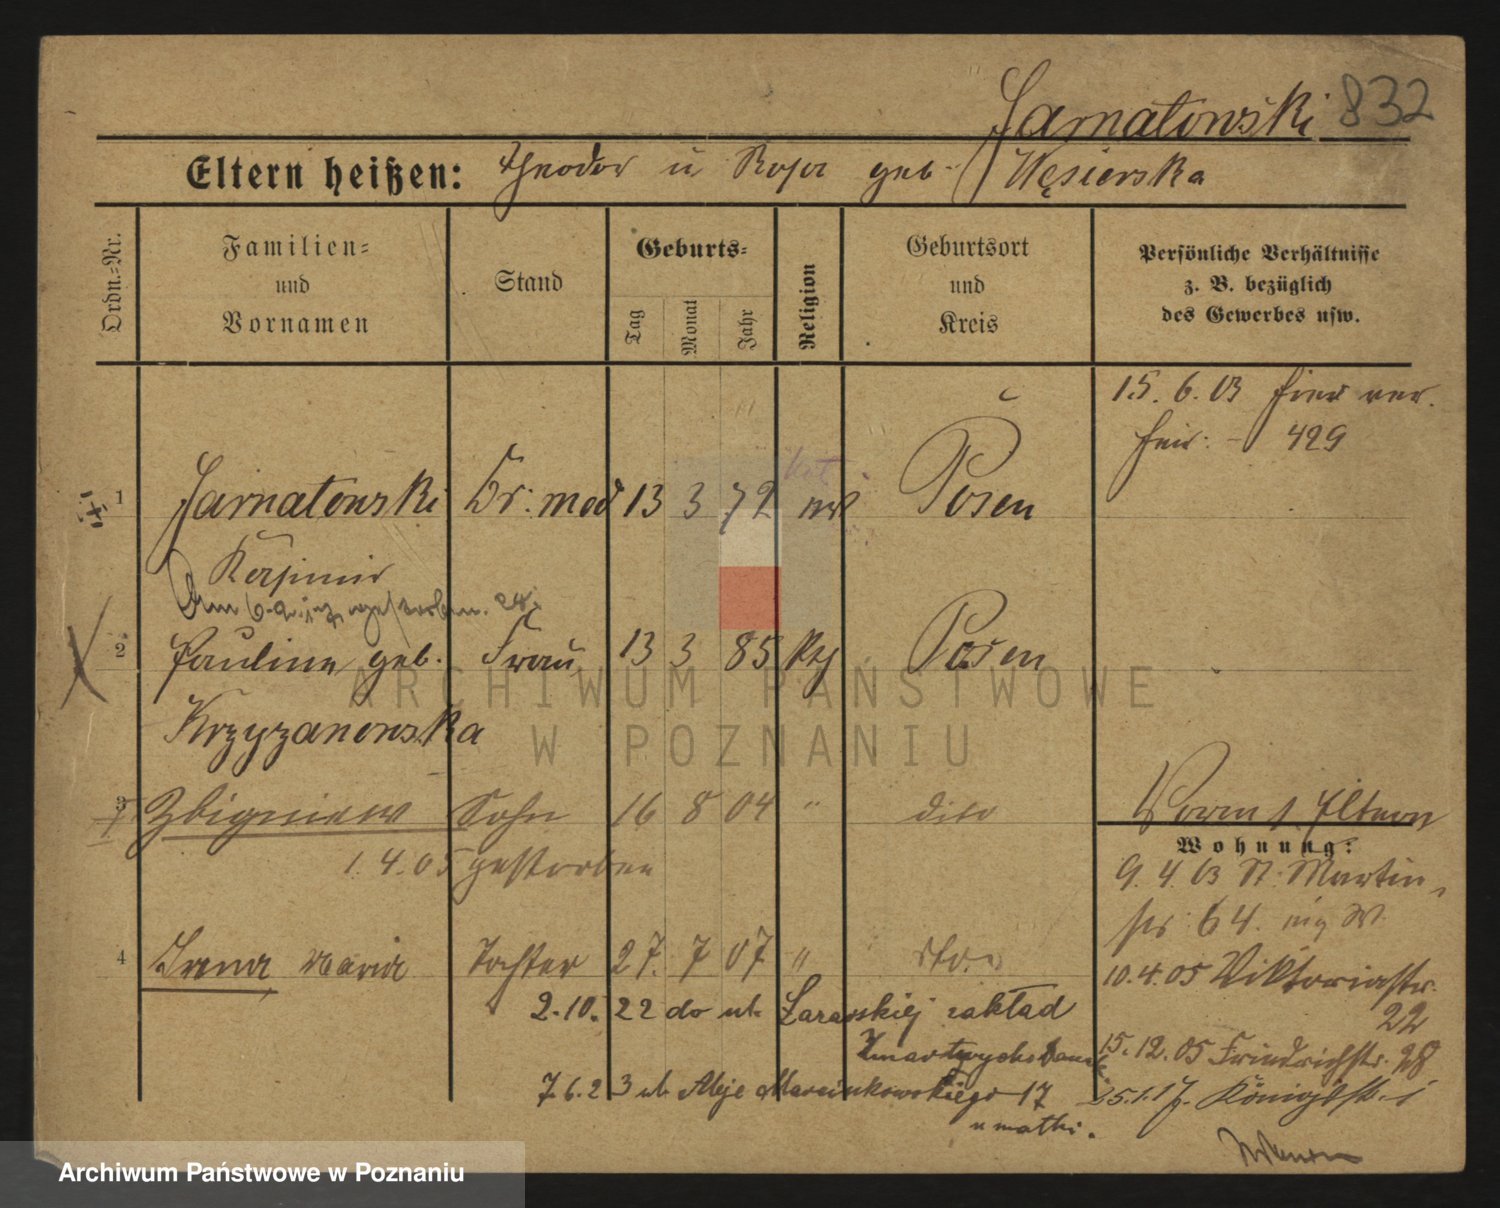 Jarnatowski 832
Eltern heißen: Theodor u Rosa geb. Węsierska
Ordn.=Nr.
Familien=
und
Vornamen
Stand
Geburts=
Tag
Monat
Jahr
Religion
Geburtsort
und
Kreis
Persönliche Verhältnisse
z. B. bezüglich
des Gewerbes usw.
15. 6. 03 hier ver.
heir. - 429
1 Jarnatowski Dr: med 13 3 72 kat Posen
Kasimir
gestorben.
2 Pauline geb. Frau 13 3 85 Posen
Krzyzanowska
3 Zbigniew Sohn 16 8 04 " dito
1. 4. 05 gestorben
Eltern
Wohnung:
9. 4. 03 St. Martin
str 64.
4 Irena Maria Tochter 27. 7 07 " dto.
10. 4. 05 Viktoriastr.
22
2. 10. 22 do ul. zakład
Zmartwychwstanek
15. 12. 05 Friedrichstr. 28
7. 6. 23 ul. Aleje Marcinkowskiego 17
u matki.
25. 1. 17. Königstr.
ARCHIWUM PAŃSTWOWE
W POZNANIU
Archiwum Państwowe w Poznaniu